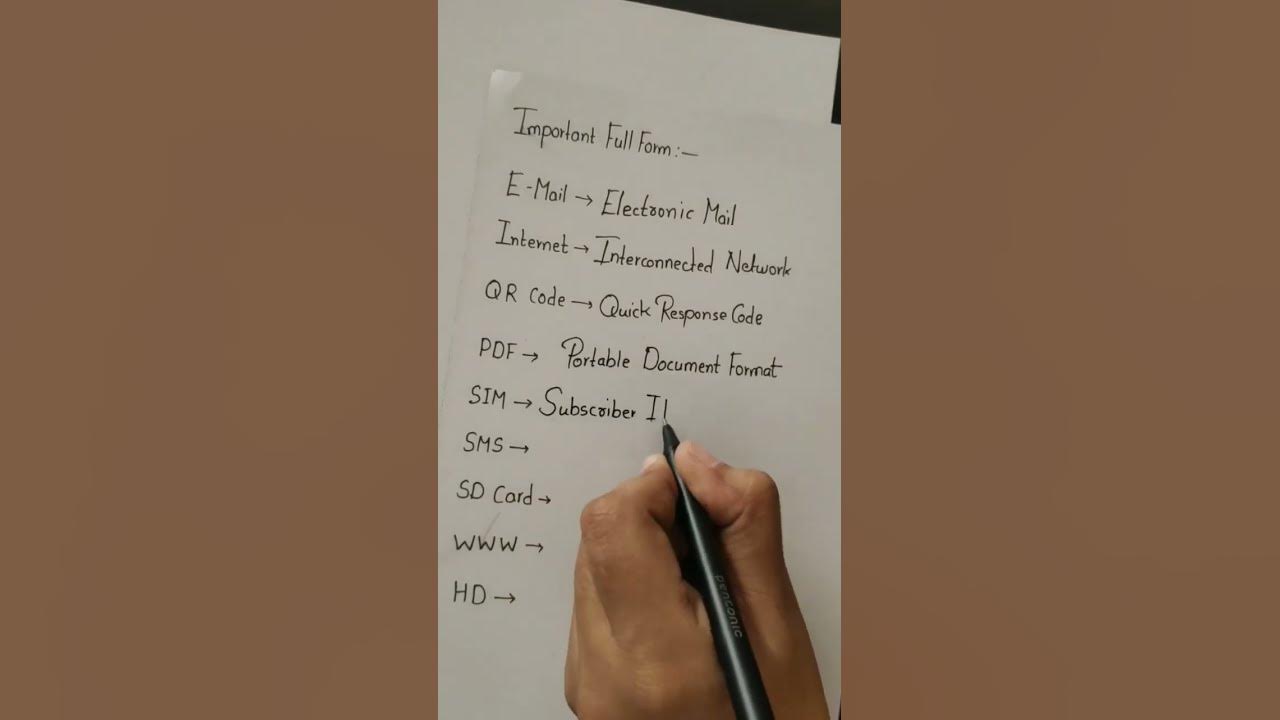 Important Full Form:—
E-Mail → Electronic Mail
Internet → Interconnected Network
QR Code → Quick Response Code
PDF → Portable Document Format
SIM → Subscriber I
SMS →
SD Card →
WWW →
HD →
pensonic